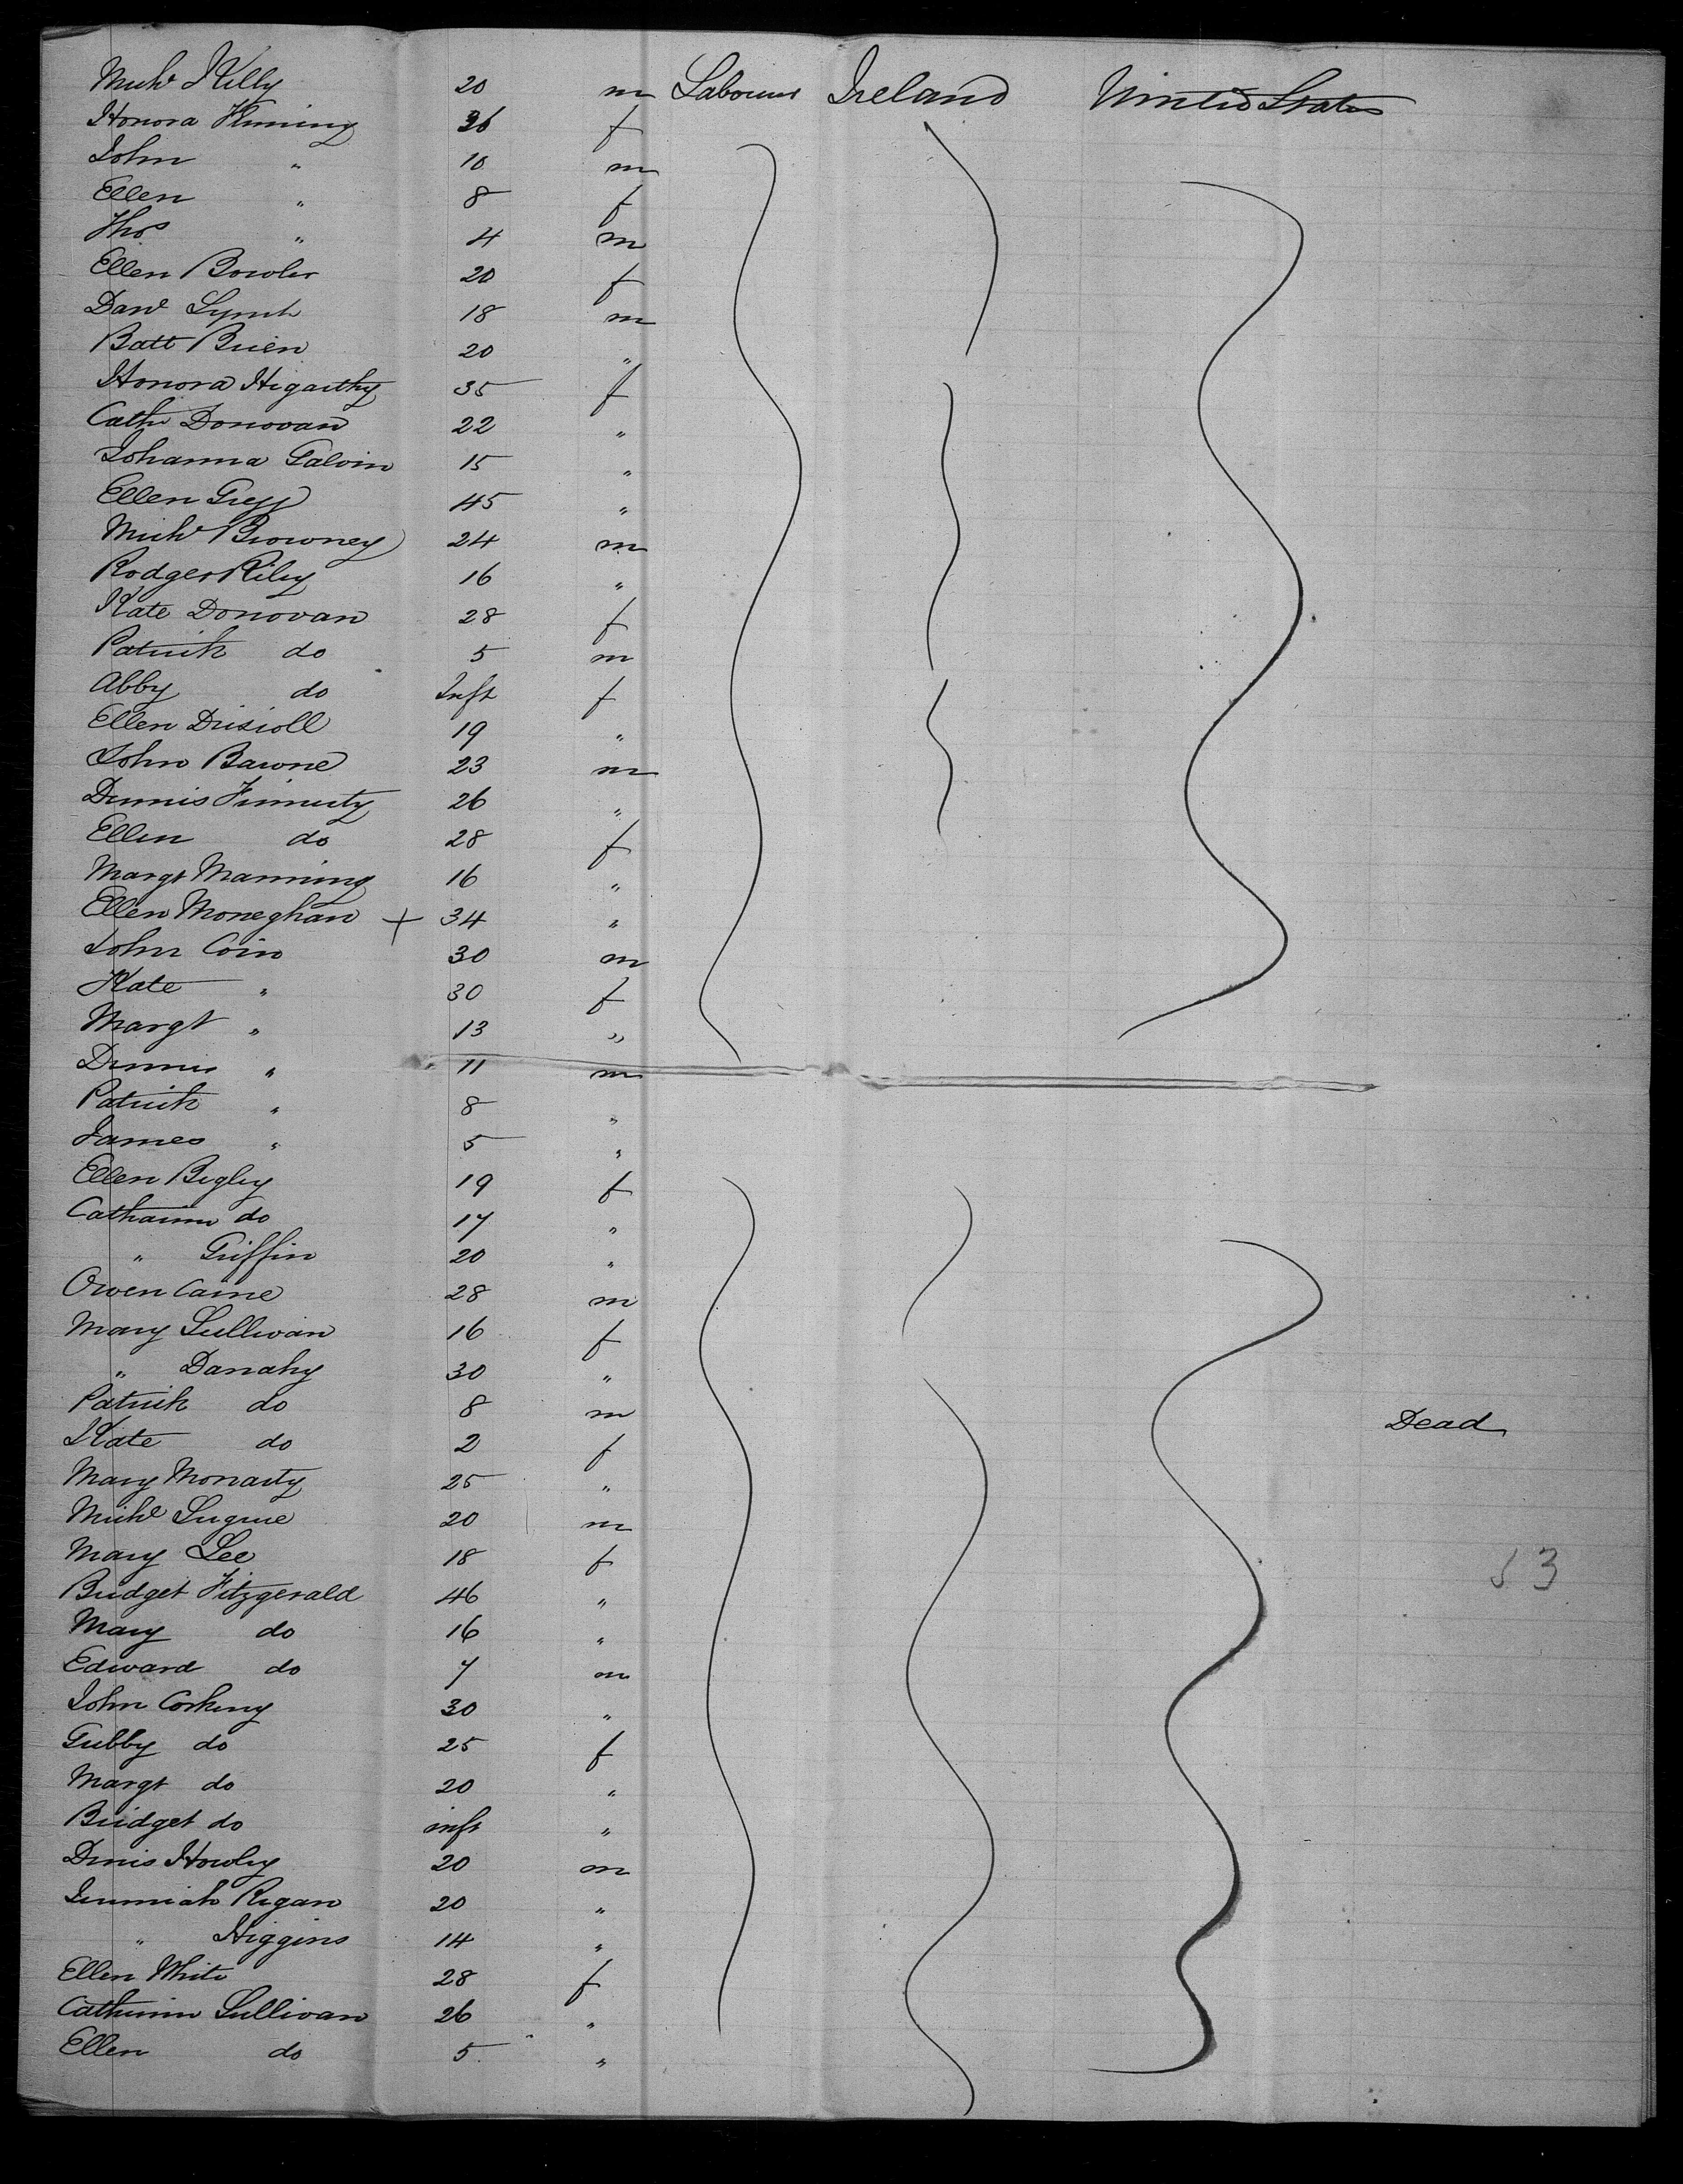 Michl Kelly 20 m Labourer Ireland United States
Honora Fleming 36 f
John " 10 m
Ellen " 8 f
Thos " 4 m
Ellen Bowler 20 f
Danl Lynch 18 m
Batt Brien 20 "
Honora Hegarthy 35 f
Cathe Donovan 22 "
Johanna Galvin 15 "
Ellen Gregg 45 "
Michl Browney 24 m
Rodger Riley 16 "
Kate Donovan 28 f
Patrick do 5 m
Abby do Inft f
Ellen Driscoll 19 "
John Barone 23 m
Dennis Finnerty 26 "
Ellen do 28 f
Margt Manning 16 "
Ellen Moneghan + 34 "
John Coin 30 m
Kate " 30 f
Margt " 13 "
Dennis " 11 m
Patrick " 8 "
James " 5 "
Ellen Begley 19 f
Catharine do 17 "
" Griffin 20 "
Owen Caine 28 m
Mary Sullivan 16 f
" Danahy 30 "
Patrick do 8 m Dead
Kate do 2 f
Mary Moriarty 25 "
Michl Sugrue 20 m
Mary Lee 18 f
Bridget Fitzgerald 46 " 53
Mary do 16 "
Edward do 7 m
John Corkery 30 "
Gubby do 25 f
Margt do 20 "
Bridget do inft "
Denis Howley 20 m
Jeremiah Regan 20 "
" Higgins 14 "
Ellen White 28 f
Catherine Sullivan 26 "
Ellen do 5 "